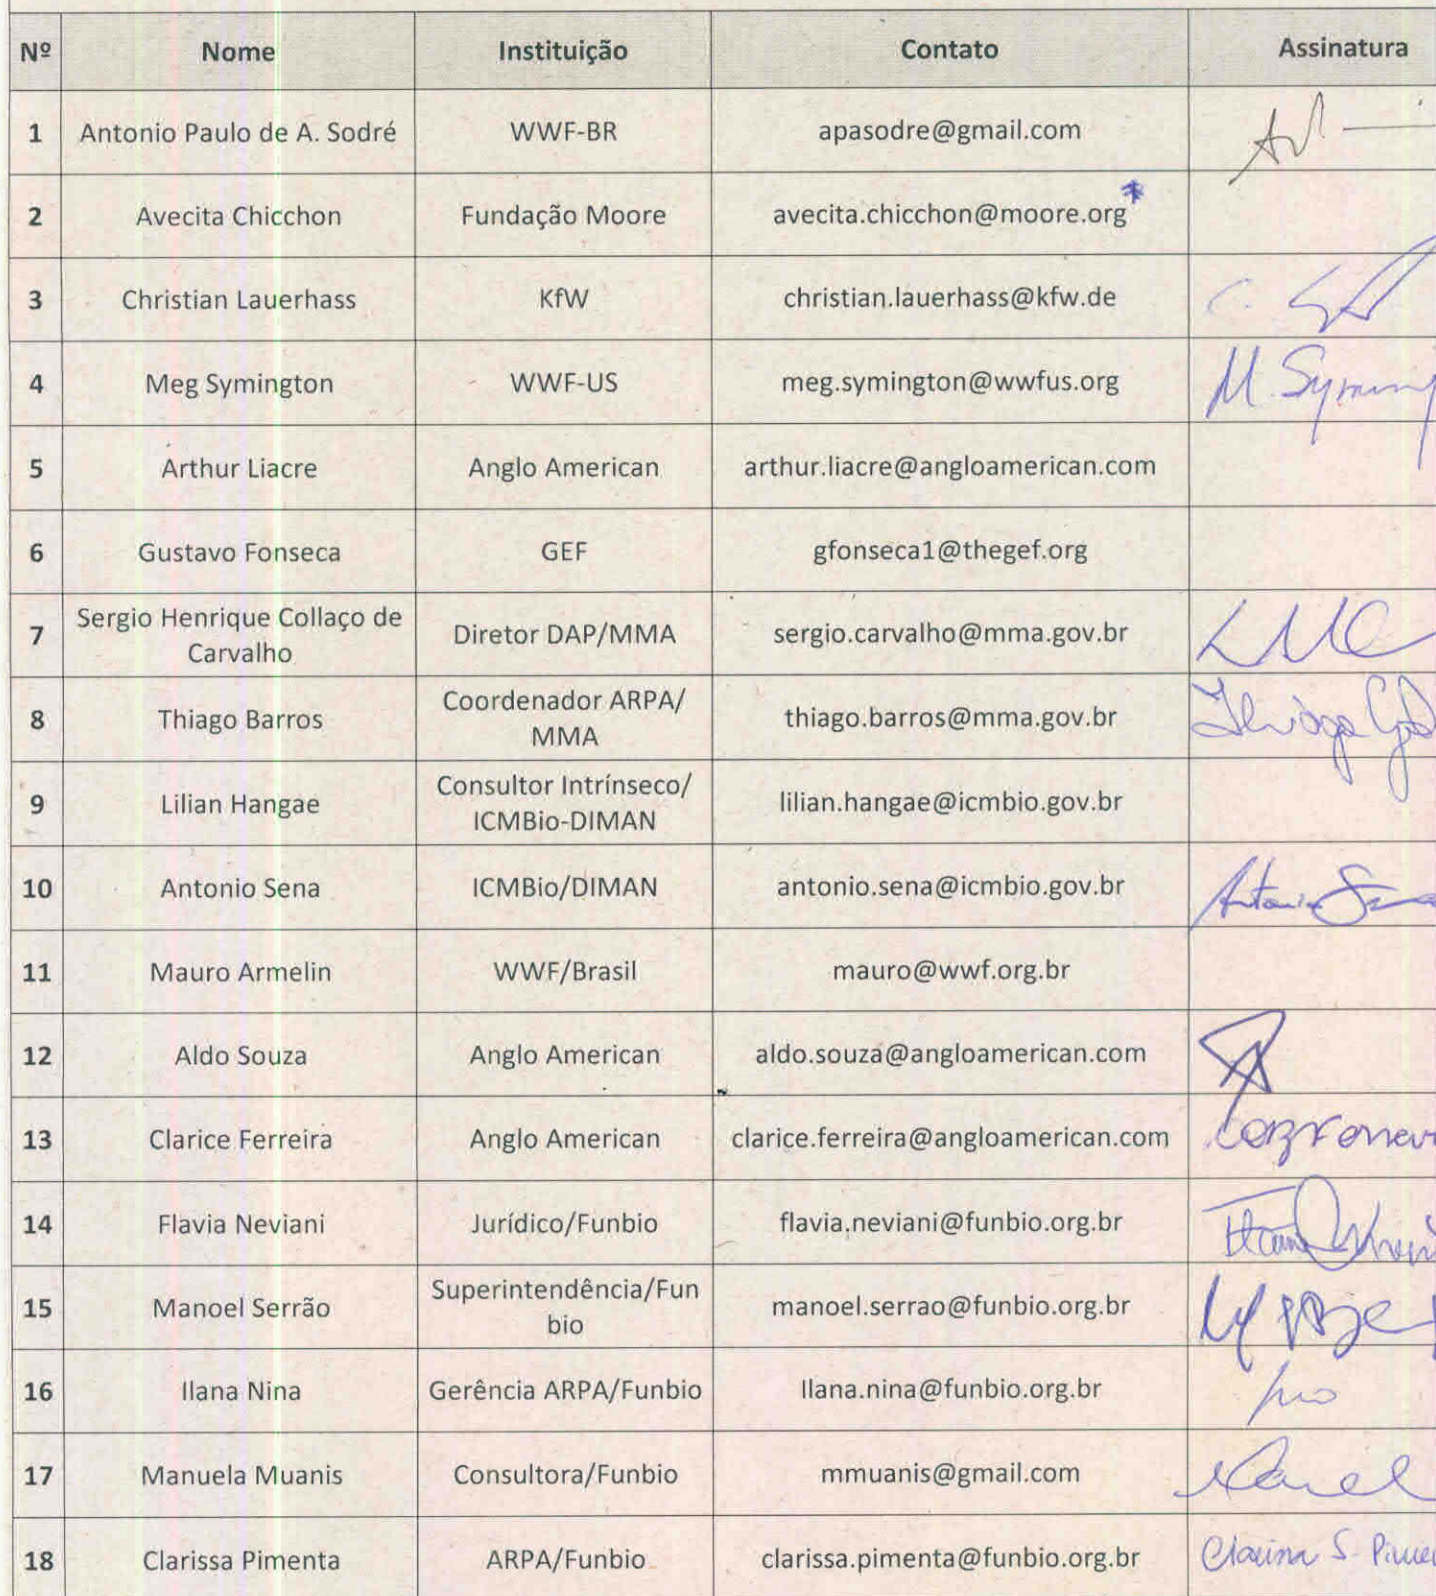 Nº Nome Instituição Contato Assinatura
1 Antonio Paulo de A. Sodré WWF-BR apasodre@gmail.com
2 Avecita Chicchon Fundação Moore avecita.chicchon@moore.org*
3 Christian Lauerhass KfW christian.lauerhass@kfw.de
4 Meg Symington WWF-US meg.symington@wwfus.org M. Syming
5 Arthur Liacre Anglo American arthur.liacre@angloamerican.com
6 Gustavo Fonseca GEF gfonseca1@thegef.org
7 Sergio Henrique Collaço de
Carvalho Diretor DAP/MMA sergio.carvalho@mma.gov.br
8 Thiago Barros Coordenador ARPA/
MMA thiago.barros@mma.gov.br Thiago
9 Lilian Hangae Consultor Intrínseco/
ICMBio-DIMAN lilian.hangae@icmbio.gov.br
10 Antonio Sena ICMBio/DIMAN antonio.sena@icmbio.gov.br Antonio Sena
11 Mauro Armelin WWF/Brasil mauro@wwf.org.br
12 Aldo Souza Anglo American aldo.souza@angloamerican.com
13 Clarice Ferreira Anglo American clarice.ferreira@angloamerican.com
14 Flavia Neviani Jurídico/Funbio flavia.neviani@funbio.org.br
15 Manoel Serrão Superintendência/Fun
bio manoel.serrao@funbio.org.br
16 Ilana Nina Gerência ARPA/Funbio Ilana.nina@funbio.org.br
17 Manuela Muanis Consultora/Funbio mmuanis@gmail.com
18 Clarissa Pimenta ARPA/Funbio clarissa.pimenta@funbio.org.br Clarissa S. Pimen